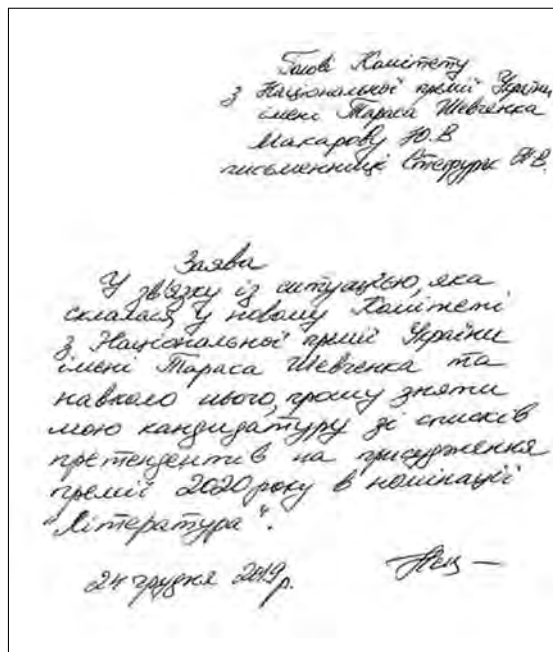 Голові Комітету
з Національної премії України
імені Тараса Шевченка
Макарову Ю.В
письменниці
Заява
У зв'язку із ситуацією, яка
склалася у новому Комітеті
з Національної премії України
імені Тараса Шевченка та
навколо нього, прошу зняти
мою кандидатуру зі списків
претендентів на присудження
премії 2020 року в номінації
"Література".
24 грудня 2019 р.